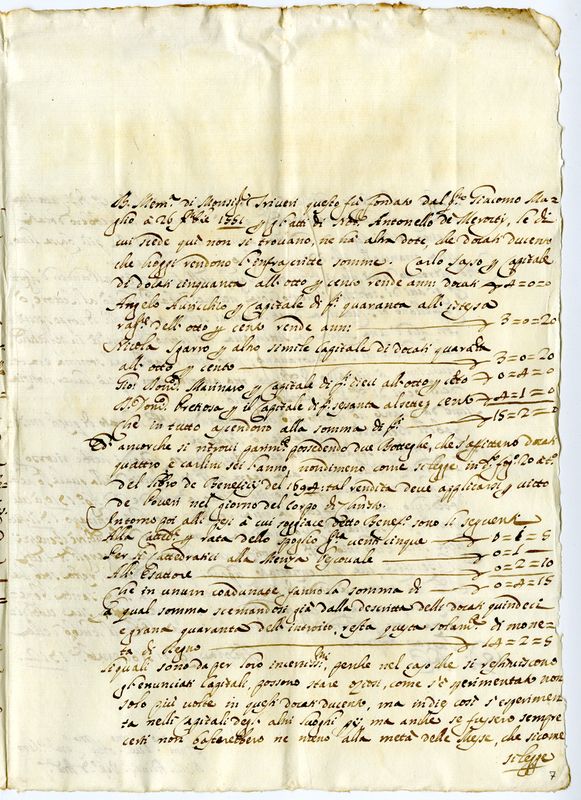 B. Mem.ª di Monsig.r Triveri questo fù fondato dal q.m Giacomo Ma-
glio à 26 Xbre 1551 p gl'atti di Not.r Antonello de Mercori, le di
cui scede qui non si trovano, ne hà altra dote, che docati ducento
che hoggi rendono l'infrascritte somme. Carlo Saso p capitale
di docati cinquanta all'otto p cento rende anni docati 4=0=0
Angelo p capitale di d.i quaranta all'istessa
rag.e dell'otto p cento rende anni 3=0=20
Nicola Sparro p altro simile capitale di docati quaranta
all'otto p cento 3=0=20
Gio: Mon.o Marinaro p capitale di d.i dieci all'otto p cento 0=4=0
D. Dom.o Pretiosa p il capitale di d.i sesanta al sei p cento 4=1=0
Che in tutto ascendono alla somma di d.i 15=2=0
Et ancorche si ritrovi parim.te possedendo due Botteghe, che s'affittano docati
quattro e carlini sei l'anno, nondimeno come si legge in d.o fog.o 20 a t.o
del libro de Beneficij del 1694 tal rendita deve applicarsi p vitto
de Poveri nel giorno del Corpo di Christo.
Intorno poi alli pesi à cui soggiace detto Benef.o sono li sequenti
Alla Cattedr.e p rata dello spoglio g.na venticinque 0=1=5
Per il cattedratici alla Mensa Vescovale 0=1
All'Esattore 0=2=10
Che in unum coadunate fanno la somma di 0=4=15
à qual somma scemandosi già dalla descritta delli docati quindeci
e grana quaranta dell'introito, resta questa solam.te di mone-
ta di Regno 14=2=5
li quali sono da per loro incertiss.mi, perche nel caso che si restituiscono
gl'enunciati capitali, possono stare oziosi, come s'è sperimentato non
solo più volte in questi docati ducento, ma indie così s'esperimen-
ta nelli capitali degl' altri luoghi pij, ma anche se fussero sempre
certi non basterebbero ne meno alla metà delle Messe, che sicome
si legge
7